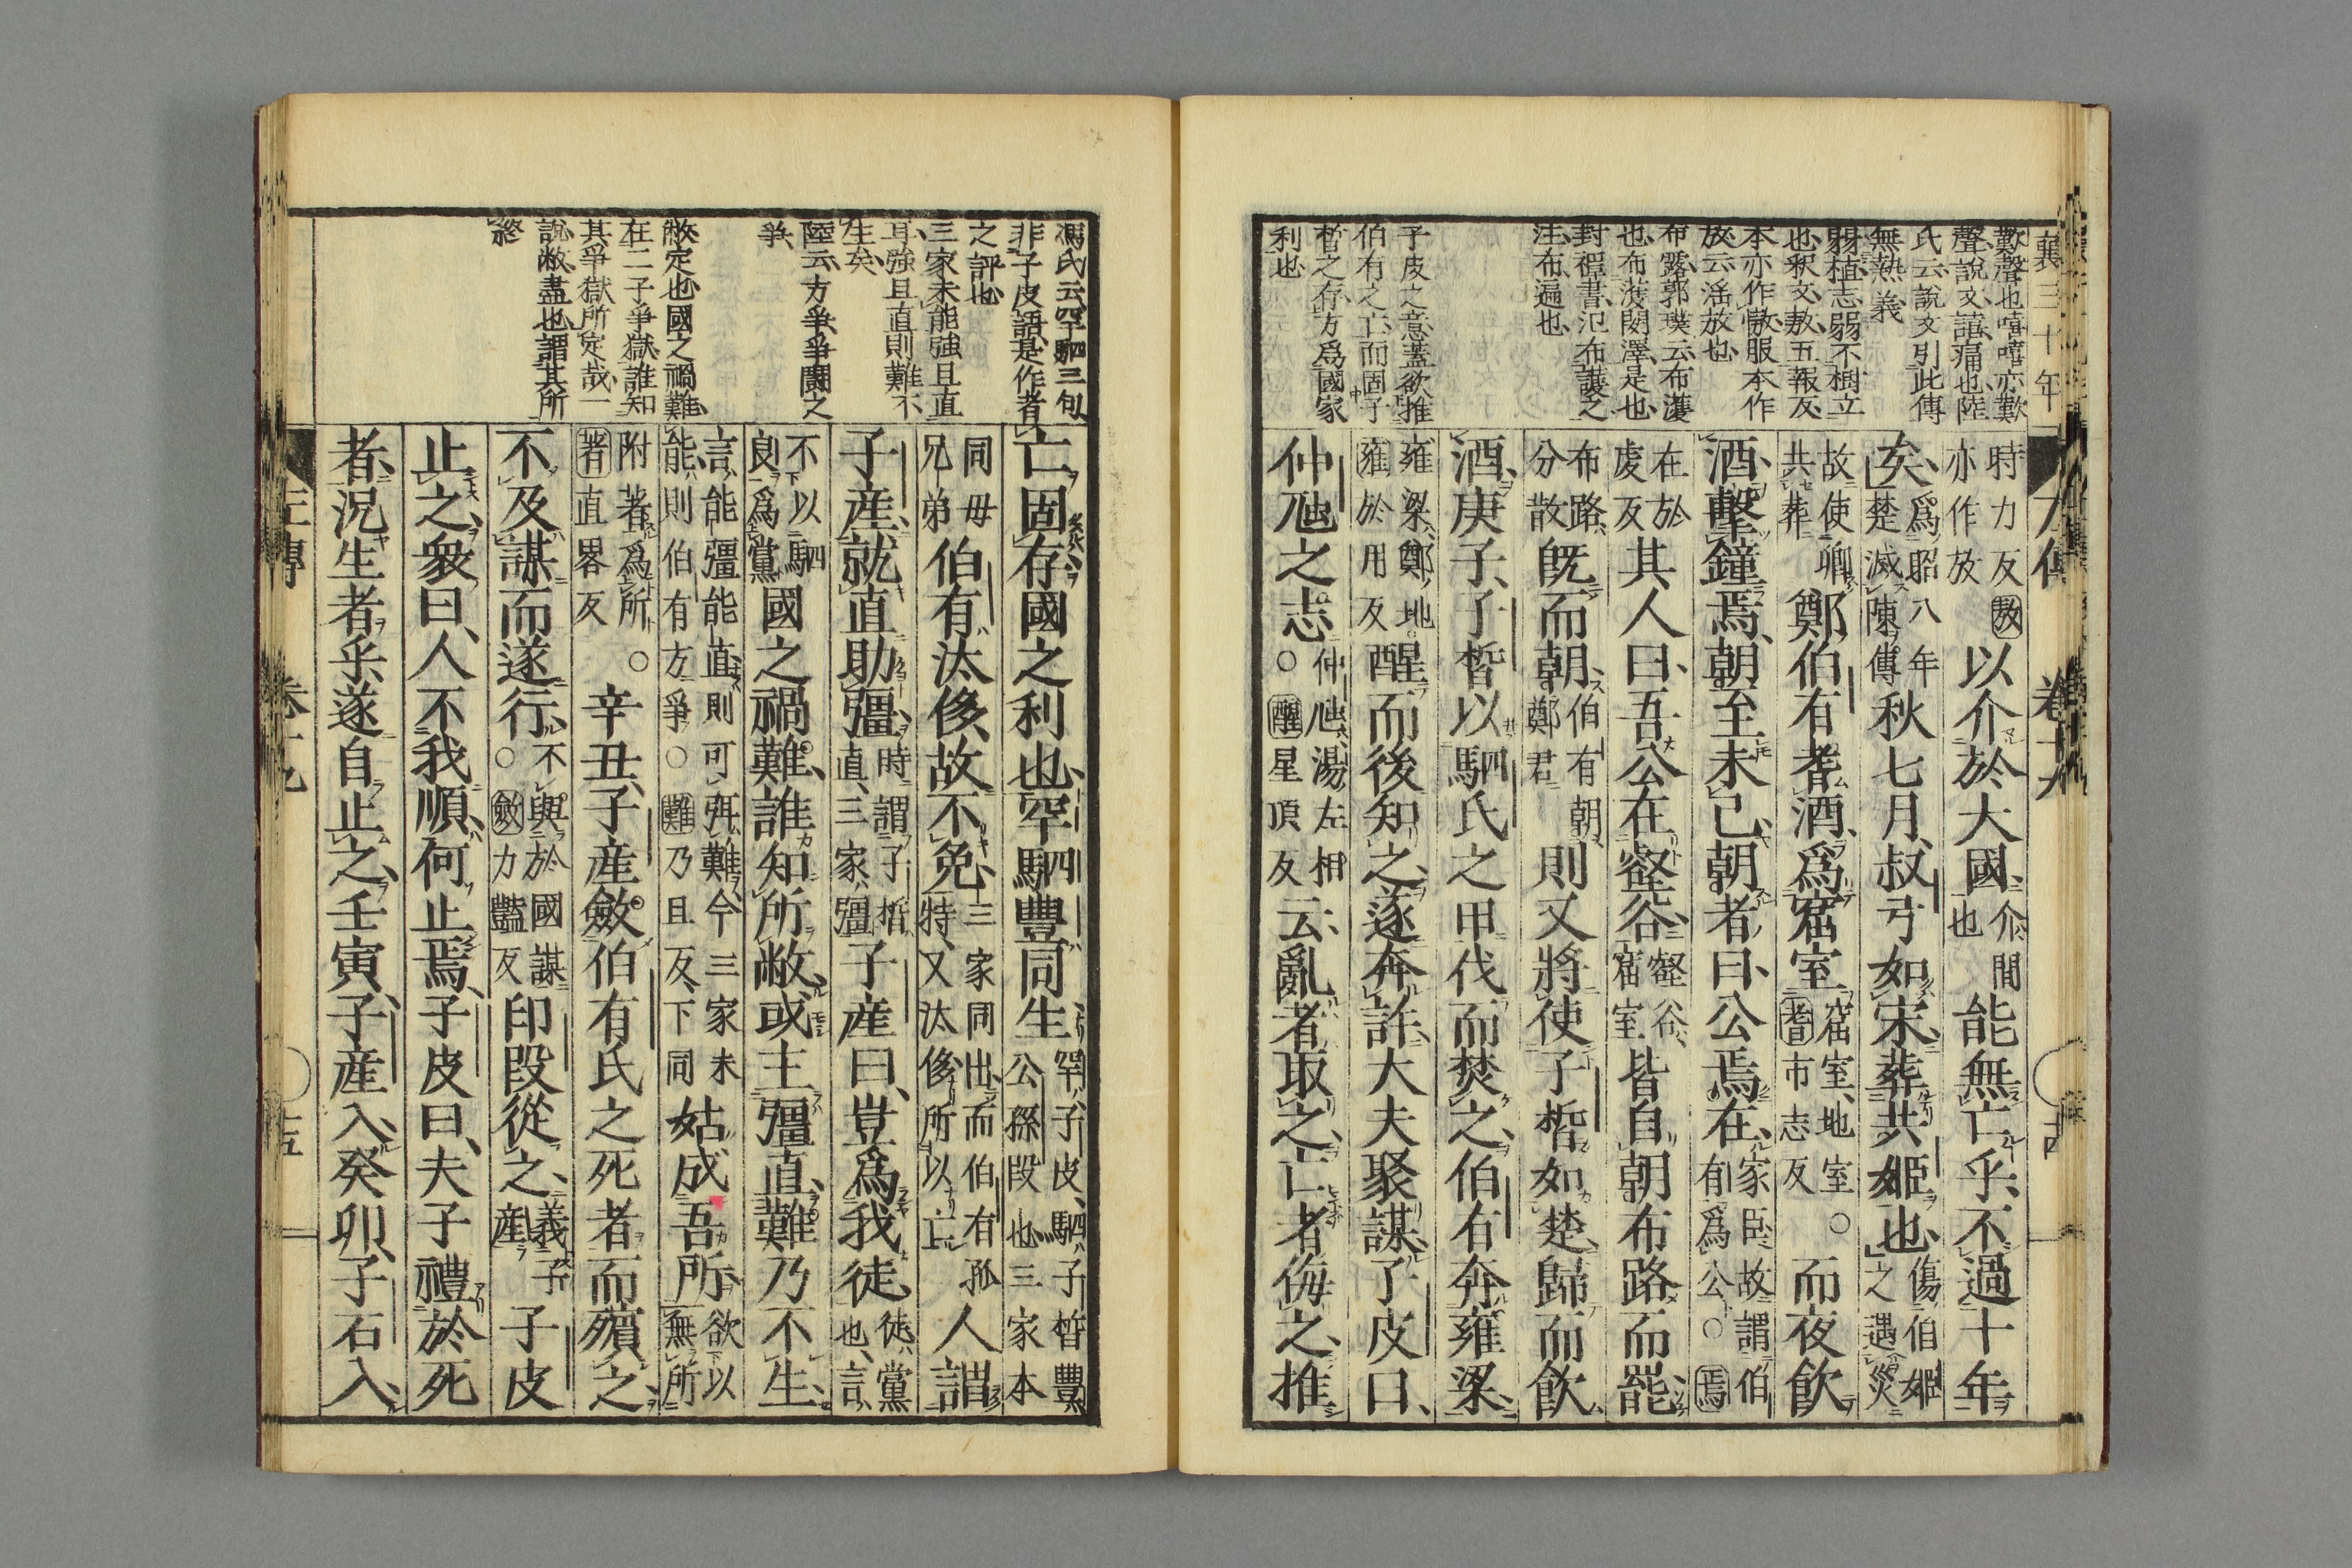 襄三十年
歎聲也嘻嘻亦歎
聲説文譆痛也陸
氏云説文引此傳
無熱義
弱植志弱不樹立
也釈文敖五報反
本亦作傲服本作
放云滛放也
布露郭璞云布濩
也布濩閎澤是也
對禪書氾布護之
注布遍也
子皮之意蓋欲推
伯有之亡而固子
皙之存方爲國家
利也
左傳 卷十九 十四
時力反敖
亦作放
以介於大國
介閒
也
能無亡乎不過十年
矣
爲昭八年
楚滅陳傳
秋七月叔弓如宋葬共姬也
傷伯姬
之遇災
故使卿
共葬
鄭伯有耆酒爲窟室
窟室地室○
耆市志反
而夜飲
酒擊鐘焉朝至未已朝者曰公焉在
家臣故謂伯
有爲公○焉
在於
虔反
其人曰吾公在壑谷
壑谷
窟室
皆自朝布路而罷
布路
分散
既而朝
伯有朝
鄭君
則又將使子皙如楚歸而飲
酒庚子子皙以駟氏之甲伐而焚之伯有奔雍梁
雍梁鄭地
雍於用反
醒而後知之遂奔許大夫聚謀子皮曰
仲虺之志
仲虺湯左相
○醒星頂反
云亂者取之亡者侮之推
馮氏云罕駟三句
非子皮語是作者
之評也
三家未能強且直
耳強且直則難不
生矣
陸云方爭爭鬭之
爭
敝定也國之禍難
在二子爭獄誰知
其爭獄所定哉一
説敝盡也謂其所
終
亡固存國之利也罕駟豐同生
罕子皮駟子皙豐
公孫段也三家本
同母
兄弟
伯有汰侈故不免
三家同出而伯有孤
特又汰侈所以亡
人謂
子産就直助彊
時謂子皙
直三家彊
子産曰豈爲我徒
徒黨
也言
不以駟
良爲黨
國之禍難誰知所敝或主彊直難乃不生
言能彊能直則可弭難今三家未
能則伯有方爭○難乃旦反下同
姑成吾所
欲以
無所
附著爲所
著直畧反
○辛丑子産斂伯有氏之死者而殯之
不及謀而遂行
不與於國謀
○斂力豔反
印段從之
義子
産
子皮
止之衆曰人不我順何止焉子皮曰夫子禮於死
者況生者乎遂自止之壬寅子産入癸卯子石入
左傳 卷十九 十五